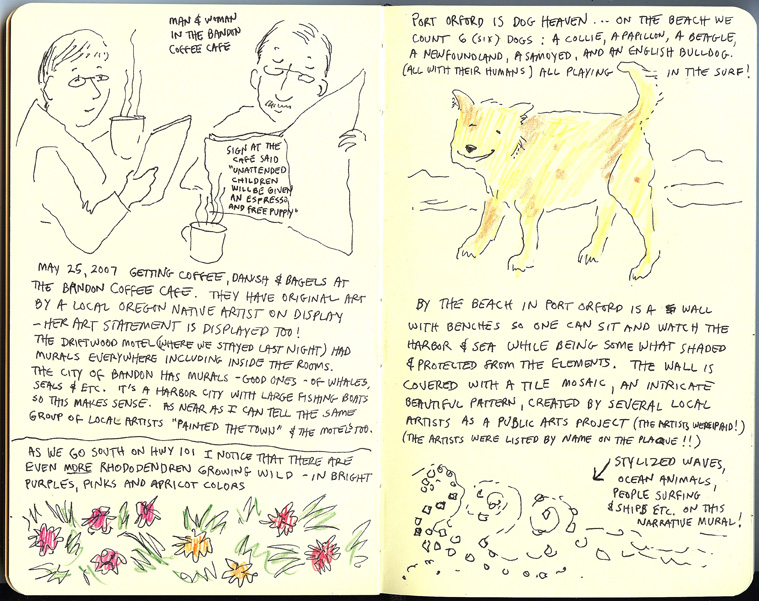 MAN & WOMAN
IN THE BANDON
COFFEE CAFE
SIGN AT THE
CAFÉ SAID
"UNATTENDED
CHILDREN
WILL BE GIVEN
AN ESPRESSO
AND FREE PUPPY"
MAY 25, 2007 GETTING COFFEE, DANISH & BAGELS AT
THE BANDON COFFEE CAFE. THEY HAVE ORIGINAL ART
BY A LOCAL OREGON NATIVE ARTIST ON DISPLAY
– HER ART STATEMENT IS DISPLAYED TOO!
THE DRIFTWOOD MOTEL (WHERE WE STAYED LAST NIGHT) HAD
MURALS EVERYWHERE INCLUDING INSIDE THE ROOMS.
THE CITY OF BANDON HAS MURALS - GOOD ONES - OF WHALES,
SEALS & ETC. IT'S A HARBOR CITY WITH LARGE FISHING BOATS
SO THIS MAKES SENSE. AS NEAR AS I CAN TELL THE SAME
GROUP OF LOCAL ARTISTS "PAINTED THE TOWN" & THE MOTELS TOO.
AS WE GO SOUTH ON HWY 101 I NOTICE THAT THERE ARE
EVEN MORE RHODODENDREN GROWING WILD - IN BRIGHT
PURPLES, PINKS AND APRICOT COLORS
PORT ORFORD IS DOG HEAVEN... ON THE BEACH WE
COUNT 6 (SIX) DOGS: A COLLIE, A PAPILLON, A BEAGLE,
A NEWFOUNDLAND, A SAMOYED, AND AN ENGLISH BULLDOG.
(ALL WITH THEIR HUMANS) ALL PLAYING IN THE SURF!
BY THE BEACH IN PORT ORFORD IS A WALL
WITH BENCHES SO ONE CAN SIT AND WATCH THE
HARBOR & SEA WHILE BEING SOME WHAT SHADED
& PROTECTED FROM THE ELEMENTS. THE WALL IS
COVERED WITH A TILE MOSAIC, AN INTRICATE
BEAUTIFUL PATTERN, CREATED BY SEVERAL LOCAL
ARTISTS AS A PUBLIC ARTS PROJECT (THE ARTISTS WERE PAID!)
(THE ARTISTS WERE LISTED BY NAME ON THE PLAQUE!!)
STYLIZED WAVES,
OCEAN ANIMALS,
PEOPLE SURFING
& SHIPS ETC. ON THIS
NARRATIVE MURAL!